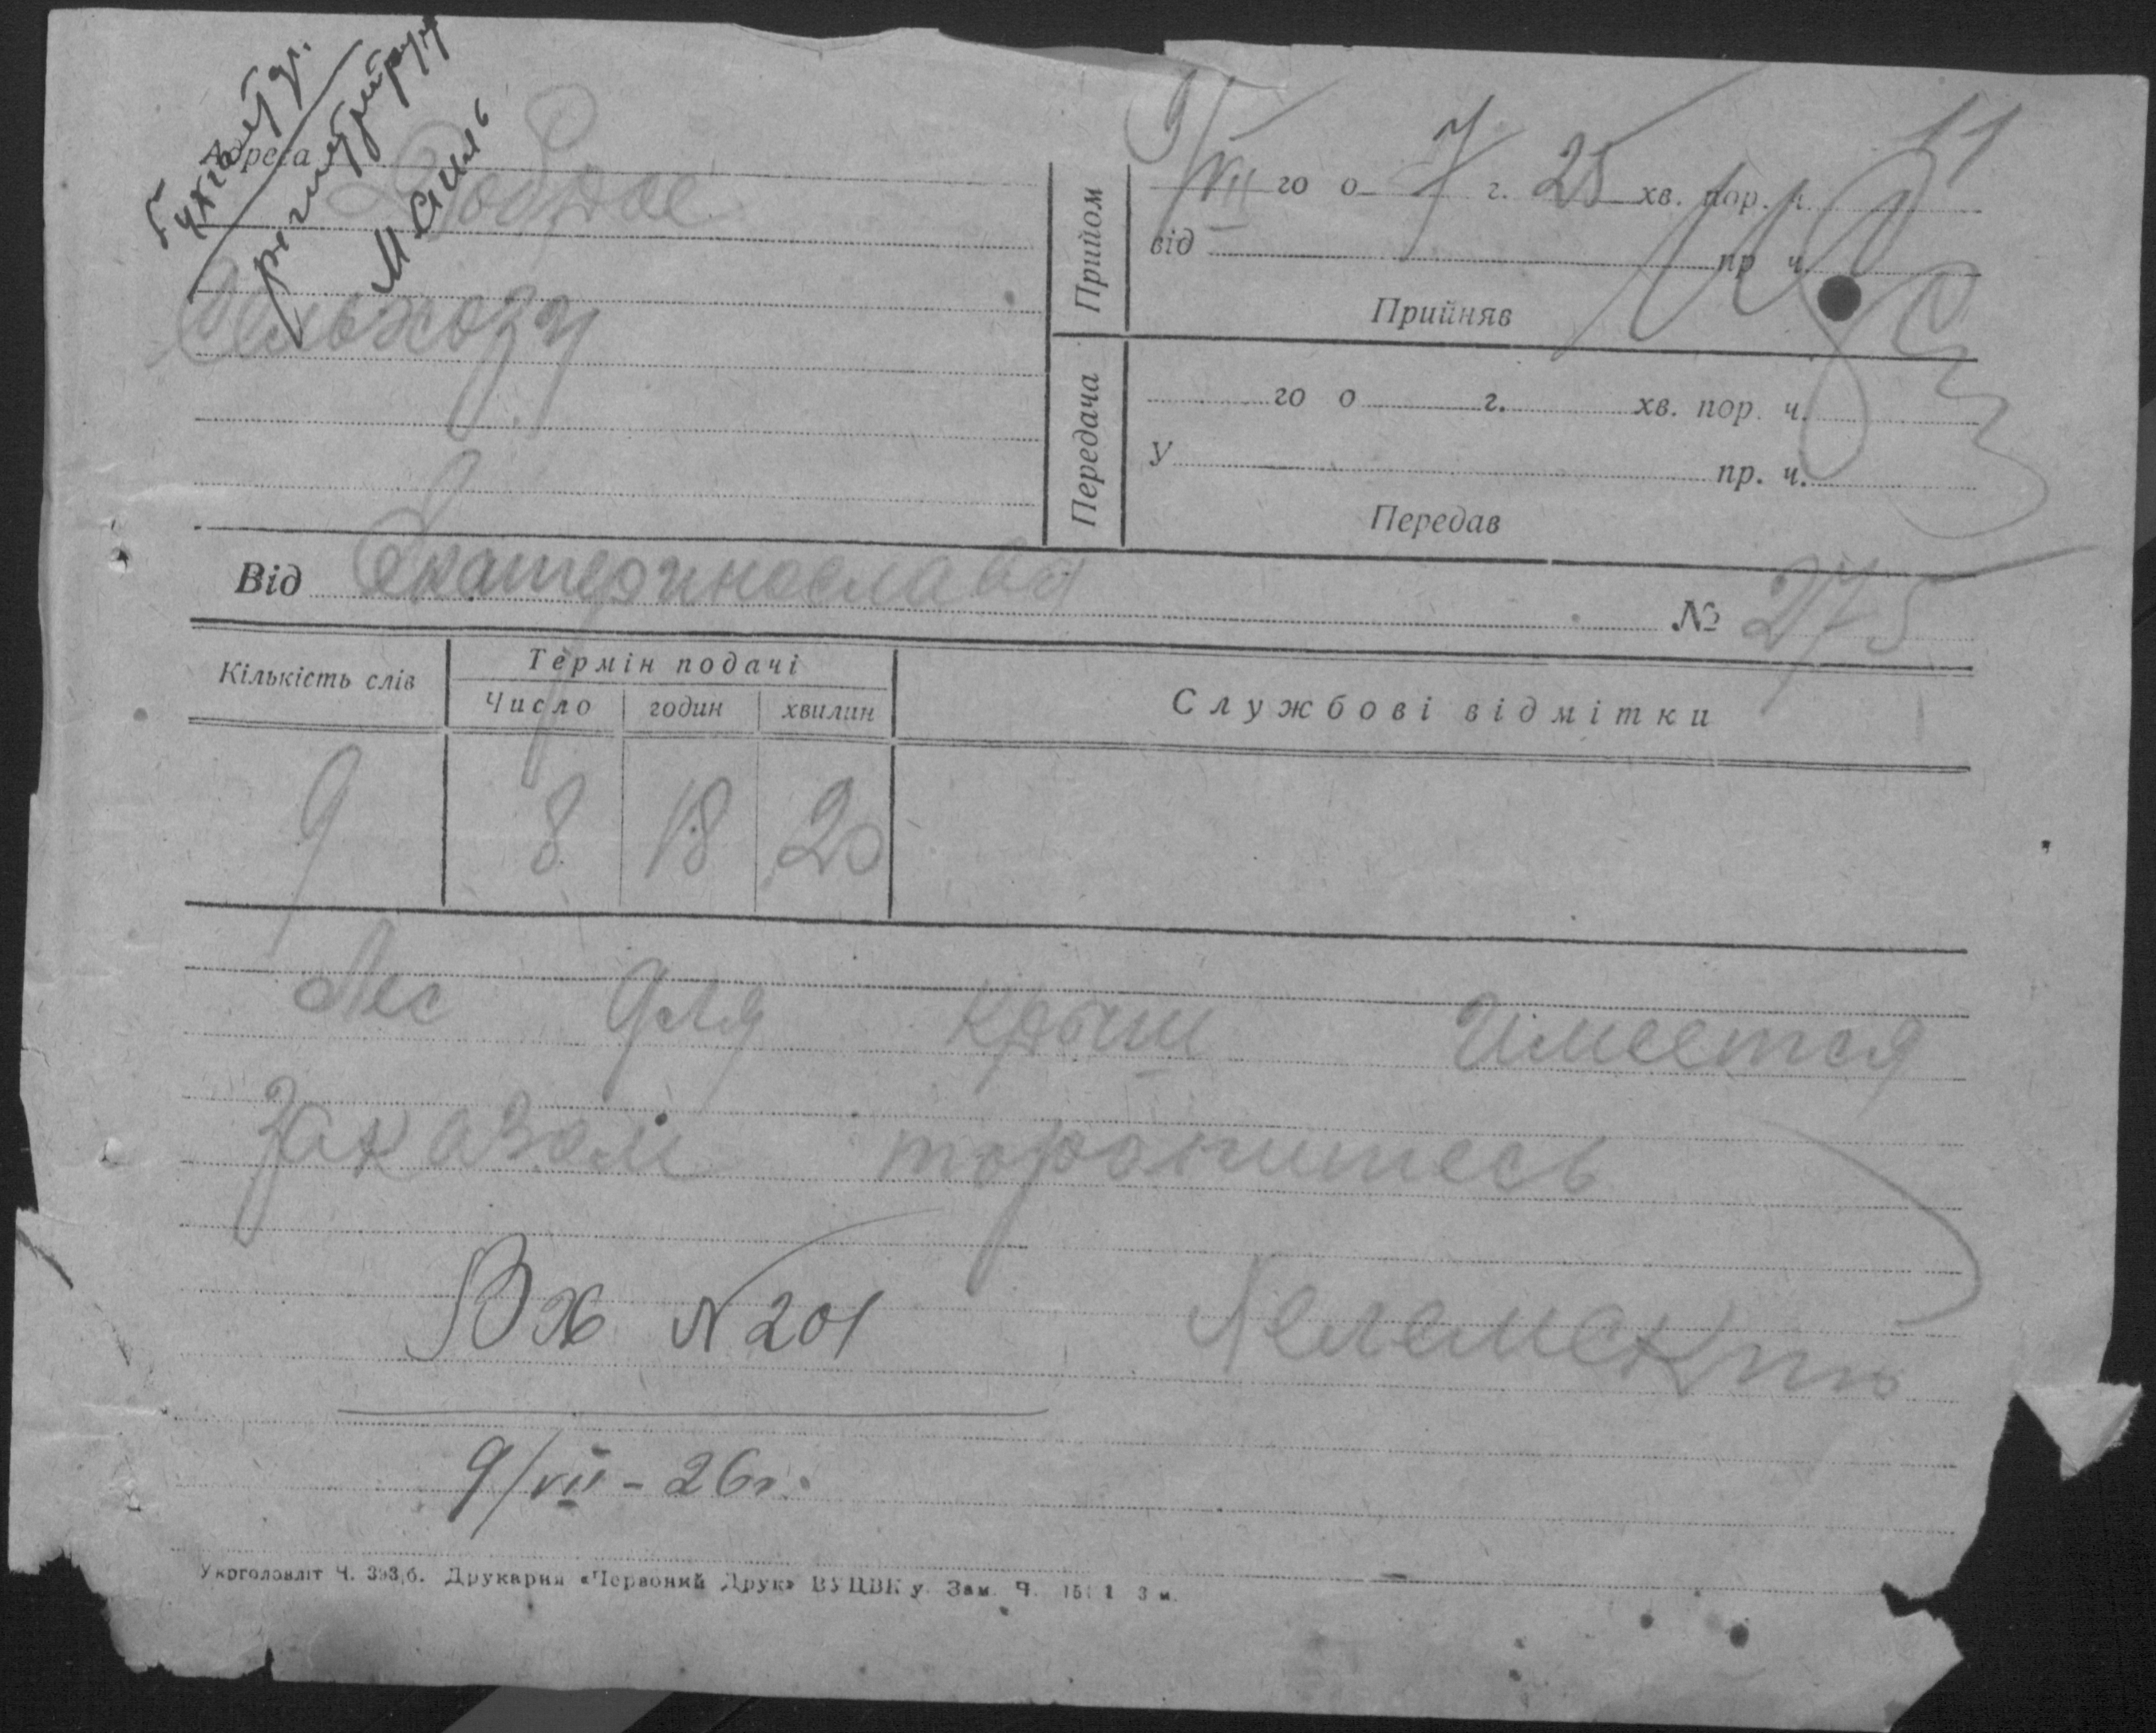 11
Адреса Доброе
Сельхозу
Прийом
9/VII го о 7 г. 25 хв. пор. ч.
від пр ч.
Прийняв
Передача
го о г. хв. пор. ч.
У пр. ч.
Передав
Від Екатеринослава № 275
Кількість слів
Термін подачі
Число годин хвилин
Службові відмітки
9 8 18 20
Лес для крыш имеется
заказом торопитесь
Вх N 201
9/VII - 26 г.
Укрголовліт Ч. Друкарня «Червоний Друк» ВУЦВКу Зам. Ч.